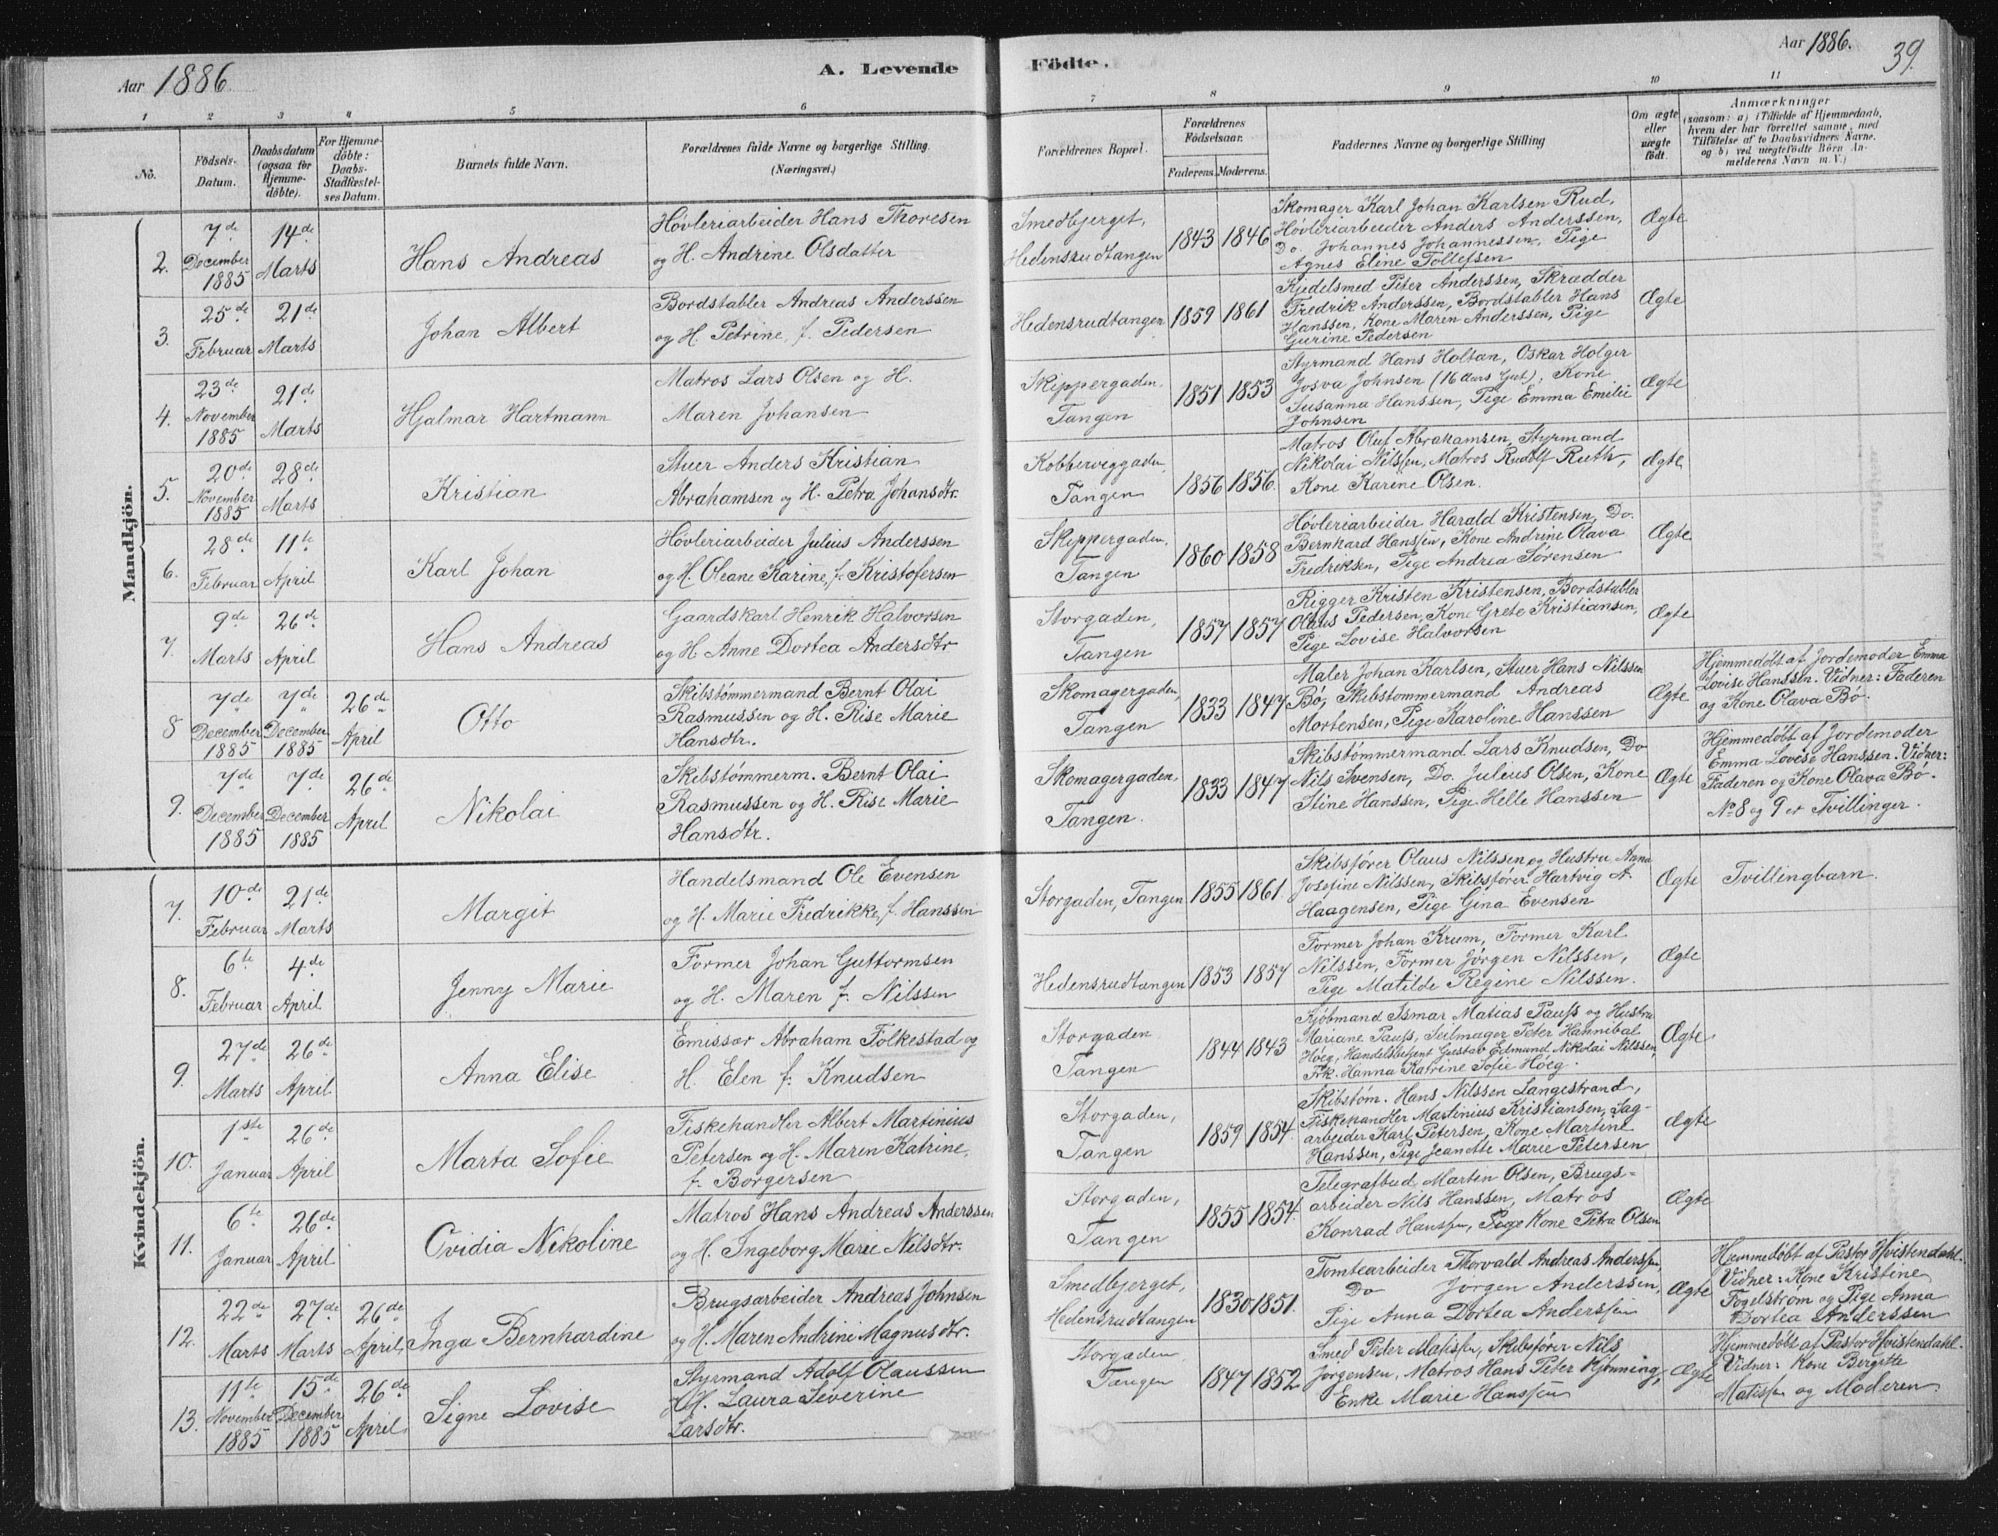 Aar 1886.
A. Levende
Födte.
Aar 1886.
39.
1 2 3 4 5 6
7 8 9 10 11
No.
Födsels-
Datum.
Daabsdatum
(ogsaa for
Hjemme-
döbte).
For Hjemme-
döbte:
Daabs-
Stadfæstel-
ses Datum.
Barnets fulde Navn.
Forældrenes fulde Navne og borgerlige Stilling.
(Næringsvei.)
Forældrenes Bopæl.
Forældrenes
Födselsaar.
Faderens. Moderens.
Faddernes Navne og borgerlige Stilling
Om ægte
eller
uægte
födt.
Anmærkninger
(saasom: a) i Tilfælde af Hjemmedaab,
hvem der har forrettet samme, med
Tilföielse af to Daabsvidners Navne,
og b) ved uægtefödte Börn An-
melderens Navn m. V.)
Mandkjön.
2.
7de
December
1885
14de
Marts
Hans Andreas
Høvleriarbeider Hans Thoresen
og H. Andrine Olsdatter
Smedbjerget,
Hedensrudtangen
1843 1846
Skomager Karl Johan Karlsen Rud,
Høvleriarbeider Anders Anderssen,
Do. Johannes Johannessen, Pige
Agnes Eline Tollefsen
Ægte
3.
25de
Februar
21de
Marts
Johan Albert
Bordstabler Andreas Anderssen
og H. Petrine, f. Pedersen
Hedensrudtangen
1859 1861
Kjedelsmed Peter Anderssen, Skrædder
Fredrik Anderssen, Bordstabler Hans
Hanssen, Kone Maren Anderssen, Pige
Gurine Pedersen
Ægte
4.
23de
November
1885
21de
Marts
Hjalmar Hartmann
Matros Lars Olsen og H.
Maren Johansen
Skippergaden,
Tangen
1851 1853
Styrmand Hans Holtan, Oskar Holger
Josva Johnsen (16 Aars Gut), Kone
Susanna Hanssen, Pige Emma Emilie
Johnsen
Ægte
5.
20de
November
1885
28de
Marts
Kristian
Stuer Anders Kristian
Abrahamsen og H. Petra Johansdtr.
Kobberveggaden,
Tangen
1856 1856.
Matros Oluf Abrahamsen, Styrmand
Nikolai Nilssen, Matros Rudolf Ruth,
Kone Karine Olsen.
Ægte
6.
28de
Februar
11te
April
Karl Johan
Høvleriarbeider Julius Anderssen
og H. Oleane Karine, f. Kristofersen
Skippergaden,
Tangen
1860 1858
Høvleriarbeider Harald Kristensen, Do.
Bernhard Hanssen, Kone Andrine Olava
Fredriksen, Pige Andrea Sørensen
Ægte
7.
9de
Marts
26de
April
Hans Andreas
Gaardskarl Henrik Halvorsen
og H. Anne Dortea Andersdtr
Storgaden,
Tangen
1857 1857
Rigger Kristen Kristensen, Bordstabler
Olaus Pedersen, Kone Grete Kristiansen,
Pige Lovise Halvorsen
Ægte
8
7de
December
1885
7de
December
1885
26de
April
Otto
Skibstømmermand Bernt Olai
Rasmussen og H. Rise Marie
Hansdtr.
Skomagergaden,
Tangen
1833 1847
Maler Johan Karlsen, Stuer Hans Nilssen
Bø, Skibstømmermand Andreas
Mortensen, Pige Karoline Hanssen
Ægte
Hjemmedøbt af Jordemoder Emma
Lovise Hanssen. Vidner: Faderen
og Kone Olava Bø.
9.
7de
December
1885
7de
December
1885
26de
April
Nikolai
Skibstømmerm. Bernt Olai
Rasmussen og H. Rise Marie
Hansdtr.
Skomagergaden,
Tangen.
1833 1847
Skibstømmermand Lars Knudsen, Do
Nils Svensen, Do. Julius Olsen, Kone
Stine Hanssen, Pige Helle Hanssen
Ægte
Hjemmedøbt af Jordemoder
Emma Lovise Hanssen. Vidner:
Faderen og Kone Olava Bø.
No 8 og 9 er Tvillinger.
Kvindekjön.
7.
10de
Februar
21de
Marts
Margit
Handelsmand Ole Evensen
og H. Marie Fredrikke, f. Hanssen
Storgaden, Tangen
1855 1861.
Skibsfører Olaus Nilssen og Hustru Anna
Josefine Nilssen, Skibsfører Hartvig A.
Haagensen, Pige Gina Evensen
Ægte
Tvillingbarn.
8.
6te
Februar
4de
April
Jenny Marie
Former Johan Guttormsen
og H. Maren f. Nilssen
Hedensrudtangen
1853 1857
Former Johan Krum, Former Karl
Nilssen, Former Jørgen Nilssen,
Pige Matilde Regine Nilssen.
Ægte
9.
27de
Marts
26de
April
Anna Elise
Emissær Abraham Folkestad og
H. Elen f. Knudsen
Storgaden
Tangen
1844 1843
Kjøbmand Ismar Matias Pauss og Hustru
Mariane Pauss, Seilmager Peter Hannibal
Høeg, Handelsbetjent Gustav Edmund Nikolai Nilssen,
Frk. Hanna Katrine Sofie Høeg.
Ægte
10.
1ste
Januar
26de
April
Marta Sofie
Fiskehandler Albert Martinius
Petersen og H. Maren Katrine,
f. Borgersen
Storgaden,
Tangen
1859 1854.
Skibstøm. Hans Nilssen Langestrand,
Fiskehandler Martinius Kristiansen, Sag-
arbeider Karl Petersen, Kone Martine
Hanssen, Pige Jeanette Marie Petersen
Ægte
11.
6te
Januar
26de
April
Ovidia Nikoline
Matros Hans Andreas Anderssen
og H. Ingeborg Marie Nilsdtr.
Storgaden,
Tangen
1855 1854.
Telegrafbud Martin Olsen, Brugs-
arbeider Nils Hanssen, Matros
Konrad Hanssen, Pige Kone Petra Olsen
Ægte
12.
22de
Marts
27de
Marts
26de
April
Inga Bernhardine
Brugsarbeider Andreas Johnsen
og H. Maren Andrini Magnusdtr.
Smedbjerget,
Hedensrudtangen
1830 1851.
Tomtearbeider Thorvald Andreas Anderssen
Do Jørgen Anderssen,
Pige Anna Dortea Anderssen
Ægte
Hjemmedøbt af Pastor Hvistendahl.
Vidner: Kone Kristine
Fogelstrøm og Pige Anna
Dortea Anderssen
13.
11te
November
1885
15de
December
1885
26de
April
Signe Lovise
Styrmand Adolf Olaussen
og H. Laura Severine
Larsdtr.
Storgaden
Tangen
1847 1852
Smed Peter Matissen, Skibsfører Nils
Jørgensen, Matros Hans Peter Hjønning,
Enke Marie Hanssen
Ægte
Hjemmedøbt af Pastor Hvistendahl.
Vidner: Kone Bergitte
Matissen og Moderen.